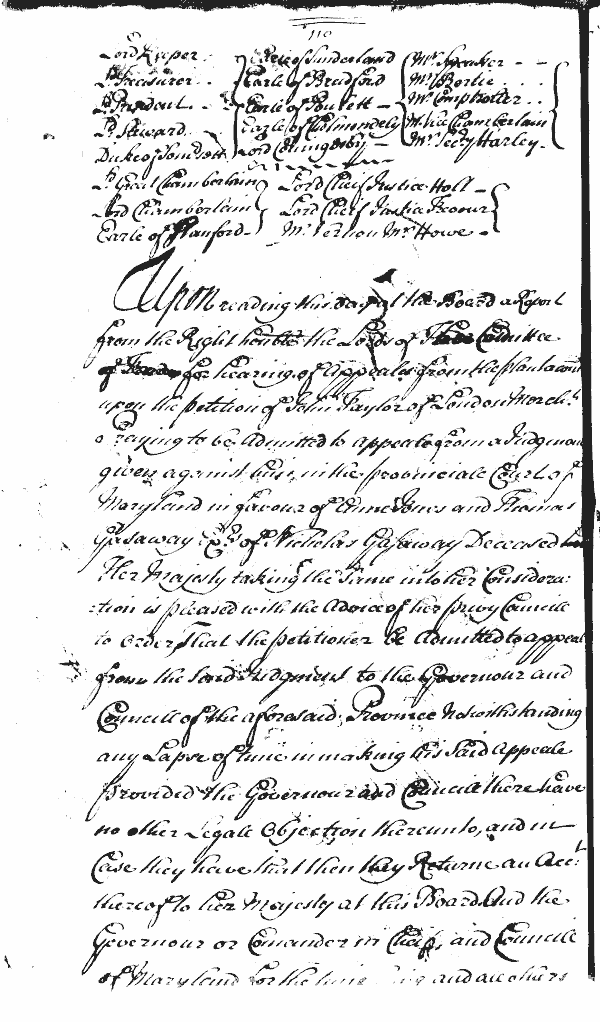 110
Lord Keeper Earle of Sunderland Mr Speaker
Ld Treasurer Earle of Bradford Mr Bertie
Ld President Earle of Poulett Mr Comptroller
Ld Steward Earle of Cholmondely Mr Vice Chamberlain
Duke of Somersett Lord Coningesby Mr Secry Harley
Ld Great Chamberlain Lord Cheif Justice Holt
Lord Chamberlain Lord Cheif Justice Trevor
Earle of Stanford Mr Vernon Mr Howe
Upon reading this day at the Board a Report
from the Right honble the Lords of the Comittee
for hearing of Appeales from the Plantacons
upon the petition of John Taylor of London Mercht
Praying to be Admitted to appeale from a Judgment
given against him in the provinciale Court of
Maryland in favour of Anne Jones and Thomas
Gassaway Exrs of Nicholas Gassaway Deceased
Her Majesty taking the same into her Considera:
:tion is pleased with the Advice of her privy Councill
to order That the petitioner be Admitted to appeal
from the said Judgment to the Governour and
Councill of the aforesaid Province Notwithstanding
any Lapse of time in making his said Appeale
Provided the Governour and Councill there have
no other Legale Objection thereunto, and in
Case they have that then they Returne an Acct:
thereof to her Majesty at this Board And the
Governour or Comander in Cheif, and Councill
of Maryland for the time being and all others